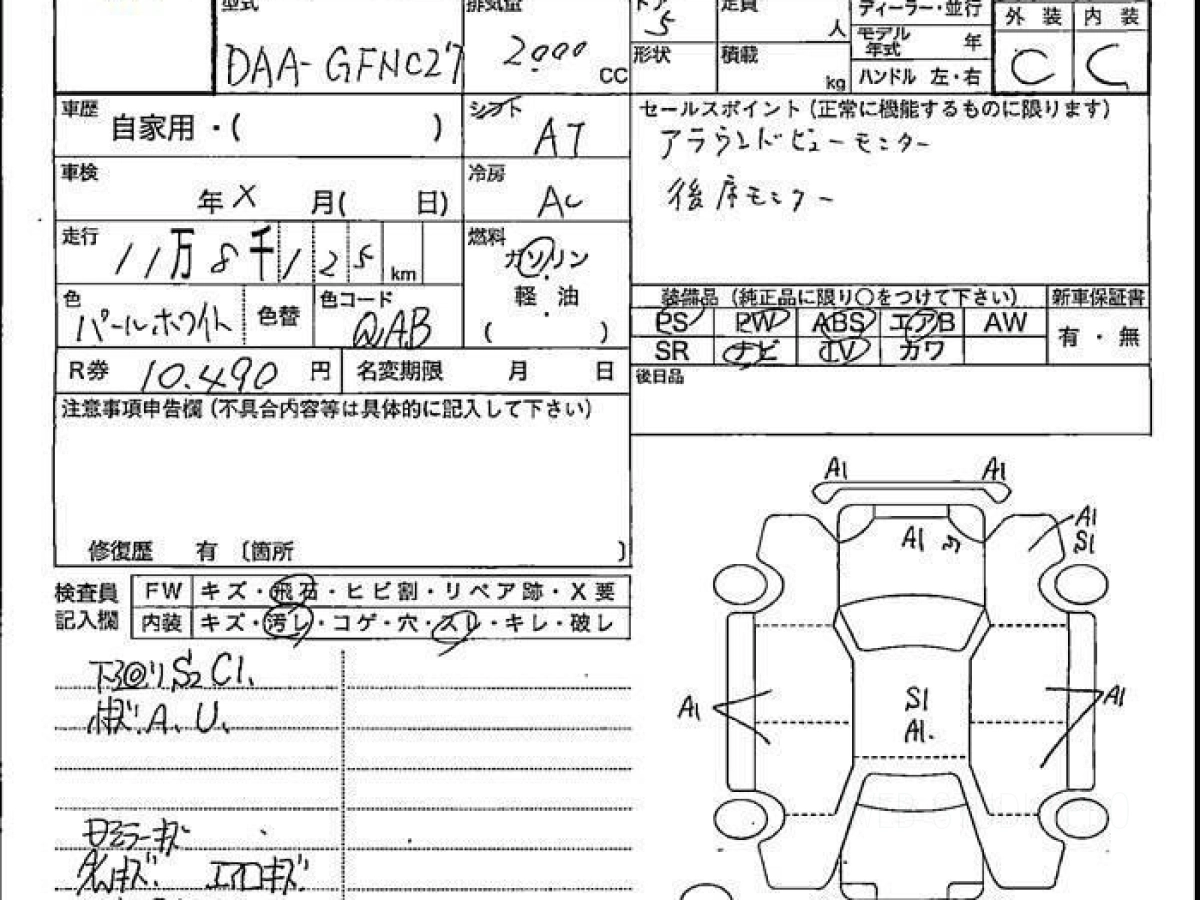 型式 排気量 ドア 定員 ディーラー・並行 外装 内装
DAA-GFNC27 2000 CC 5 人 モデル年式 年 C C
形状 積載 kg ハンドル 左・右
車歴 自家用・( ) シフト AT セールスポイント (正常に機能するものに限ります)
アラウンドビューモニター
車検 年 X 月( 日) 冷房 AC 後席モニター
走行 11万8千125 km 燃料 ガソリン
軽・油
( )
色 パールホワイト 色替 色コード QAB
装備品 (純正品に限り○をつけて下さい) 新車保証書
PS PW ABS エアB AW 有・無
SR ナビ TV カワ
R券 10.490 円 名変期限 月 日 後日品
注意事項申告欄 (不具合内容等は具体的に記入して下さい)
修復歴 有 〔箇所 〕
検査員記入欄 FW キズ・飛石・ヒビ割・リペア跡・X要
内装 キズ・汚レ・コゲ・穴・スレ・キレ・破レ
下回り S2 C1.
A. U.
ミラーキズ
エアロキズ
A1 A1
A1
A1
S1
A1
S1
A1.
A1